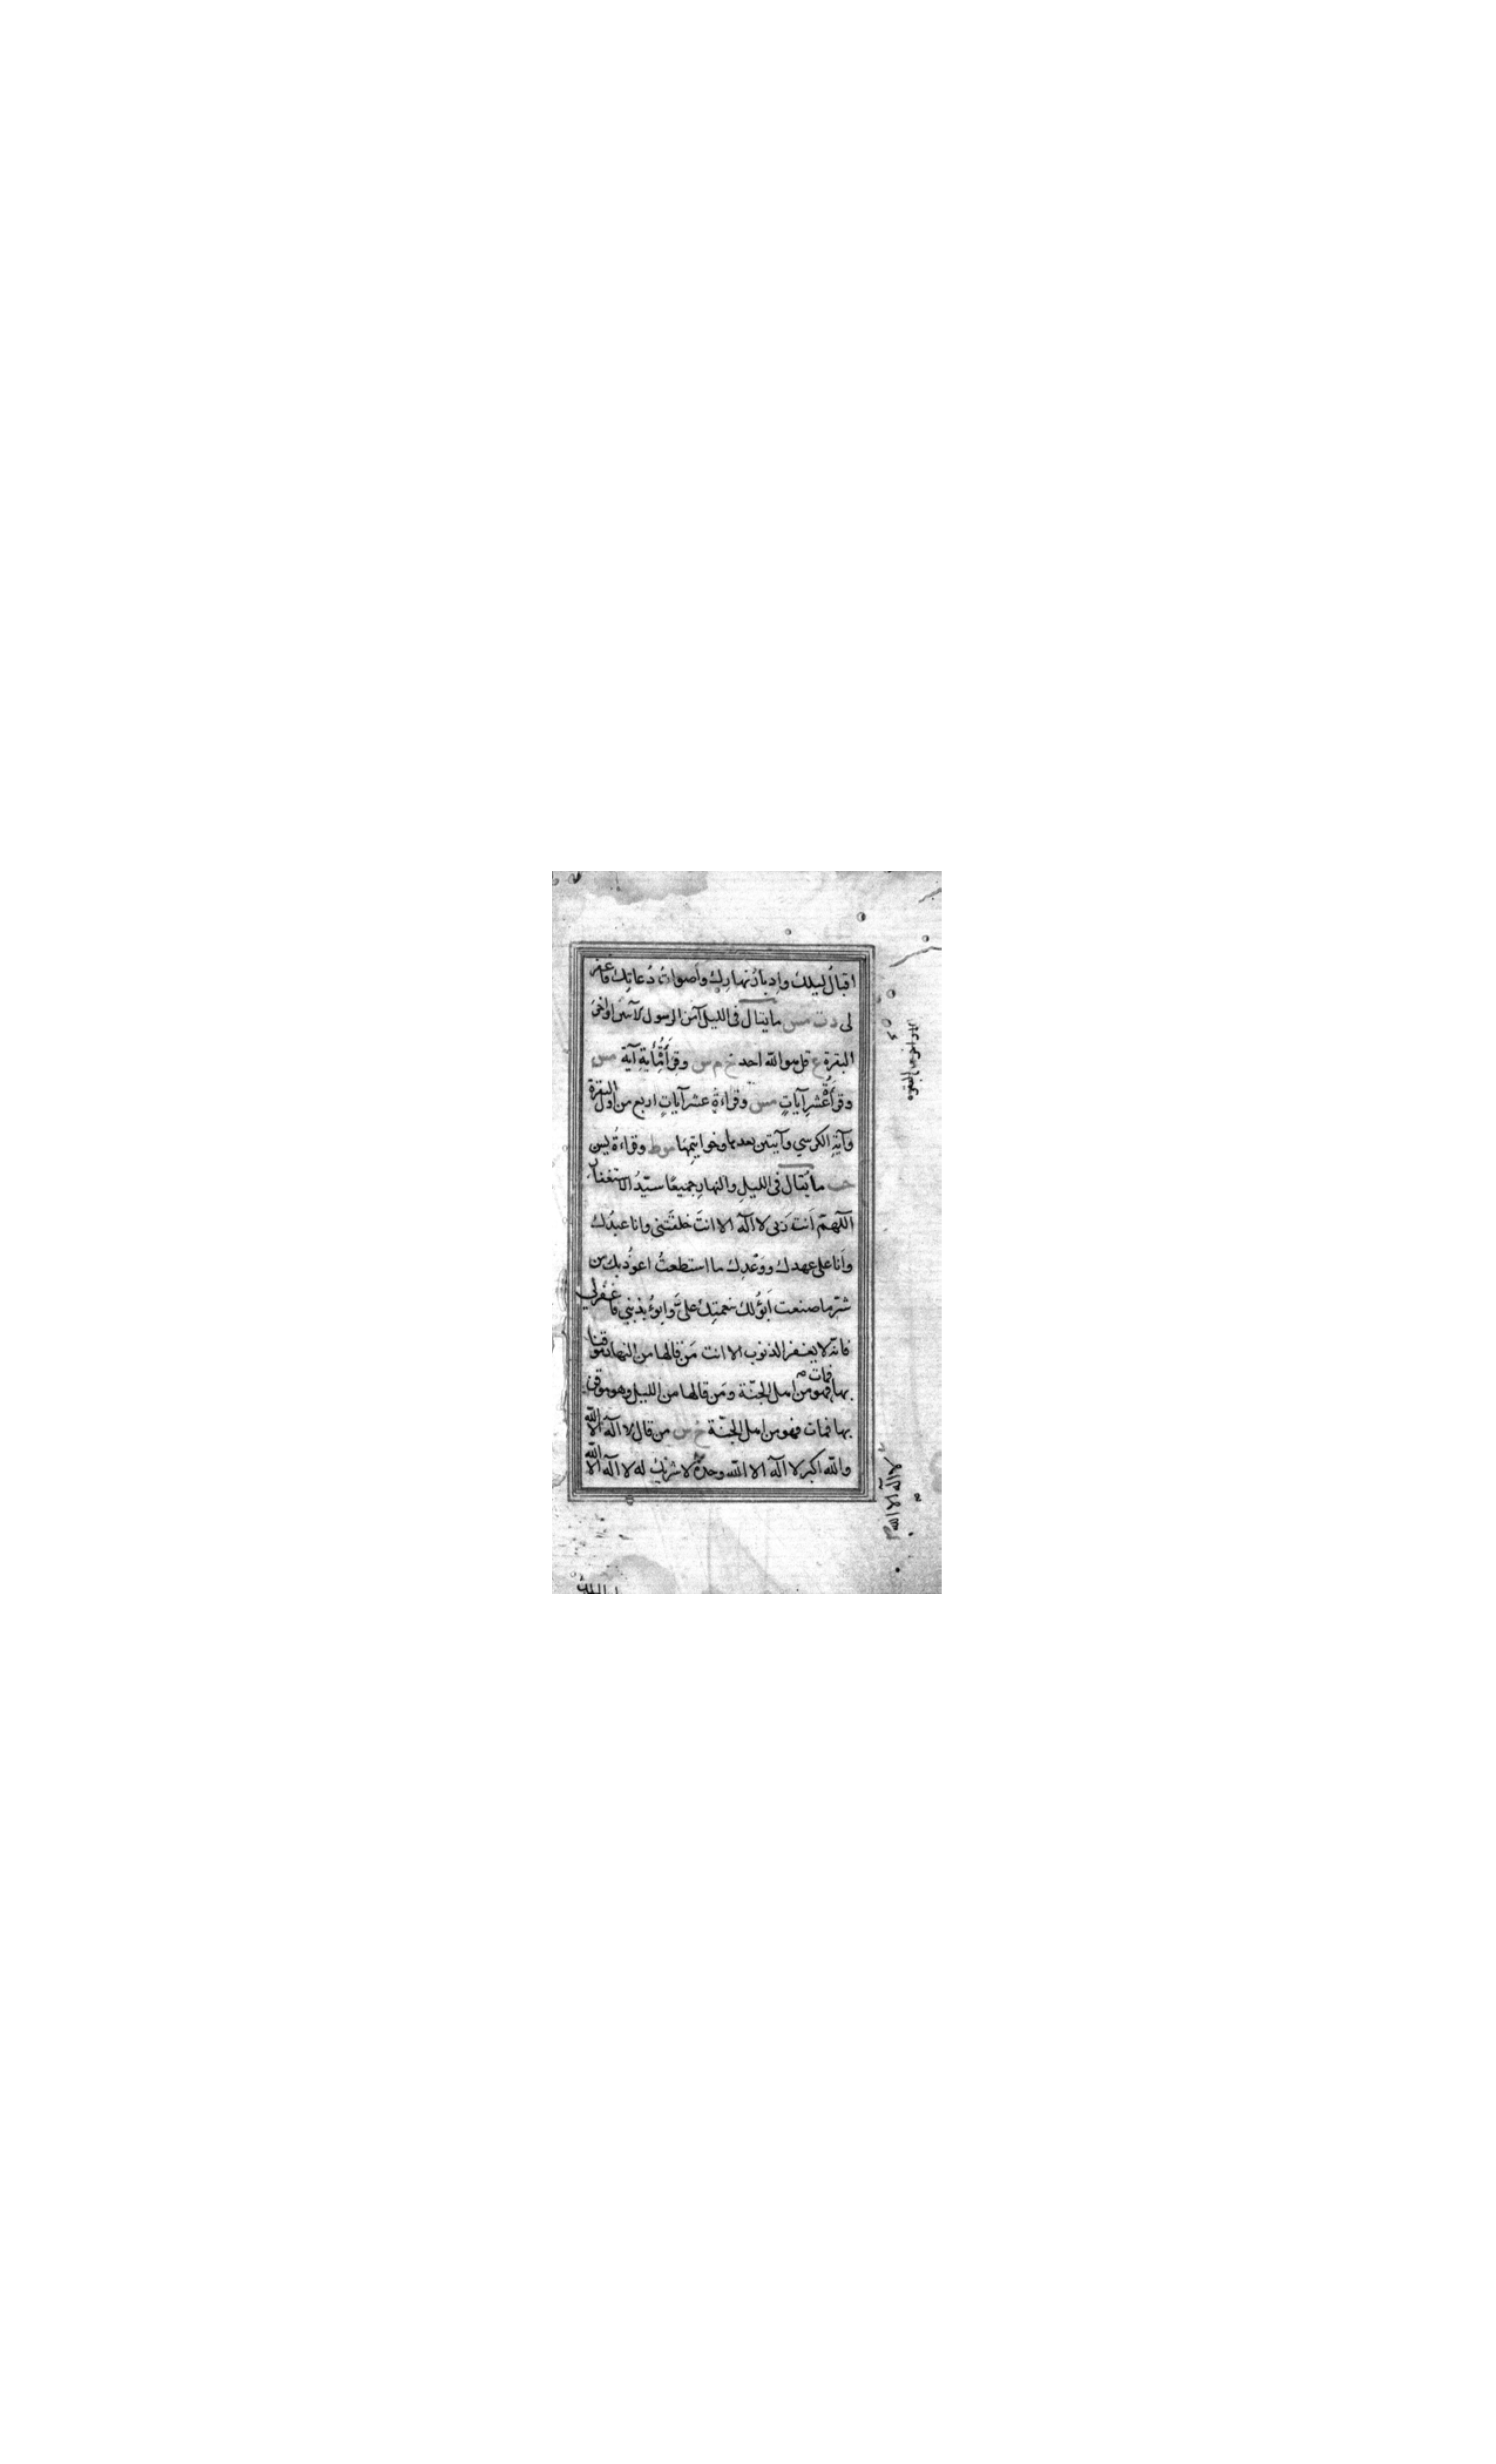 اقبالُ ليلك وإدبارُ نهارِك وأصواتُ دُعاتِك فاغفر
لى دت مس ما يقال فى الليل آمن الرسول
البقرة ع قل هو الله احد خ م س وقرأ مائة آية مس
وقرأ عشر آياتٍ مس وقراءةُ عشر آياتٍ اربع من اول البقرة
وآيةِ الكرسي وآيتين بعدها وخواتيمِها موط وقراءةُ يس
حب ما يُقال فى الليلِ والنهارِ جميعًا سيّدُ الاستغفار
اللهمّ اَنت رَبى لا اله الا انتَ خلقتَنى وانا عبدُك
واَنا على عهدك ووَعْدِك ما استطعتُ اعوذُ بك من
شرّ ما صنعت اَبؤُ لك بنعمتِك علىَّ وابوءُ بذنبي فاغفرلي
فانّه لا يغفر الذنوب الا انت مَن قالها من النهار موقنا
بها فمات فهو من اهل الجنّة ومَن قالها من الليل وهو موقن
بها فمات فهو من اهل الجنّة خ س من قال لا اله الا الله
والله اكبر لا اله الا الله وحدهُ لا شريك له لا اله الا الله
لا اله الا الله